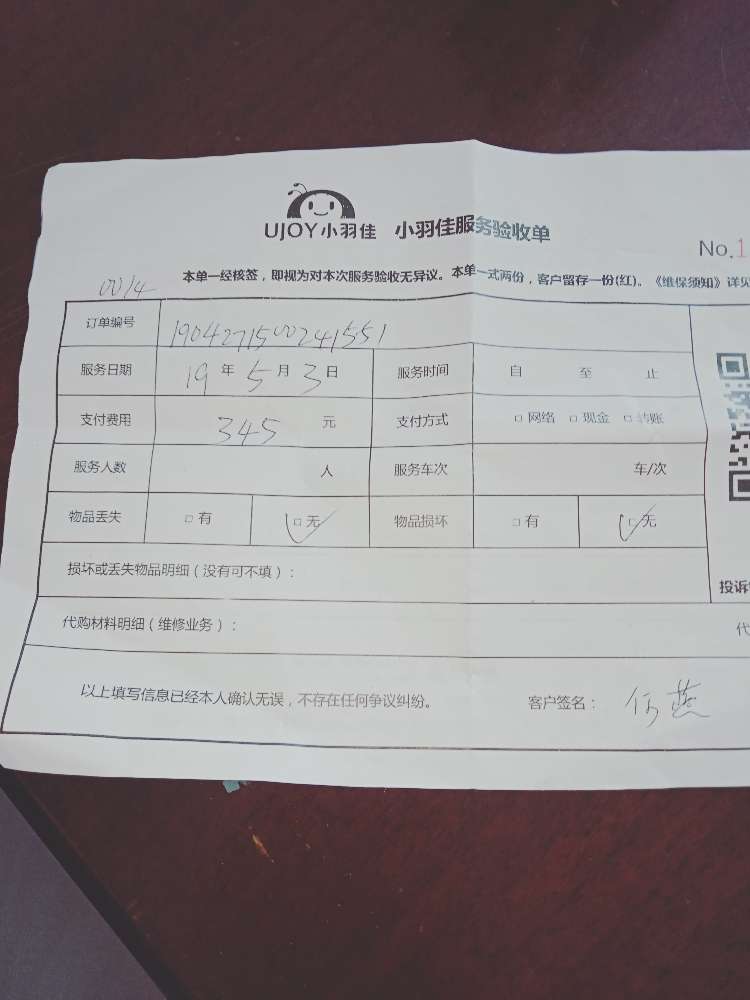 UJOY小羽佳 小羽佳服务验收单
No.1
0014
本单一经核签，即视为对本次服务验收无异议。本单一式两份，客户留存一份(红)。《维保须知》详见
订单编号 1904271500241551
服务日期 19年5月3日 服务时间 自 至 止
支付费用 345 元 支付方式 □网络 □现金 □转账
服务人数 人 服务车次 车/次
物品丢失 □有 □无 物品损坏 □有 □无
损坏或丢失物品明细（没有可不填）：
投诉
代购材料明细（维修业务）： 代
以上填写信息已经本人确认无误，不存在任何争议纠纷。 客户签名： 何燕